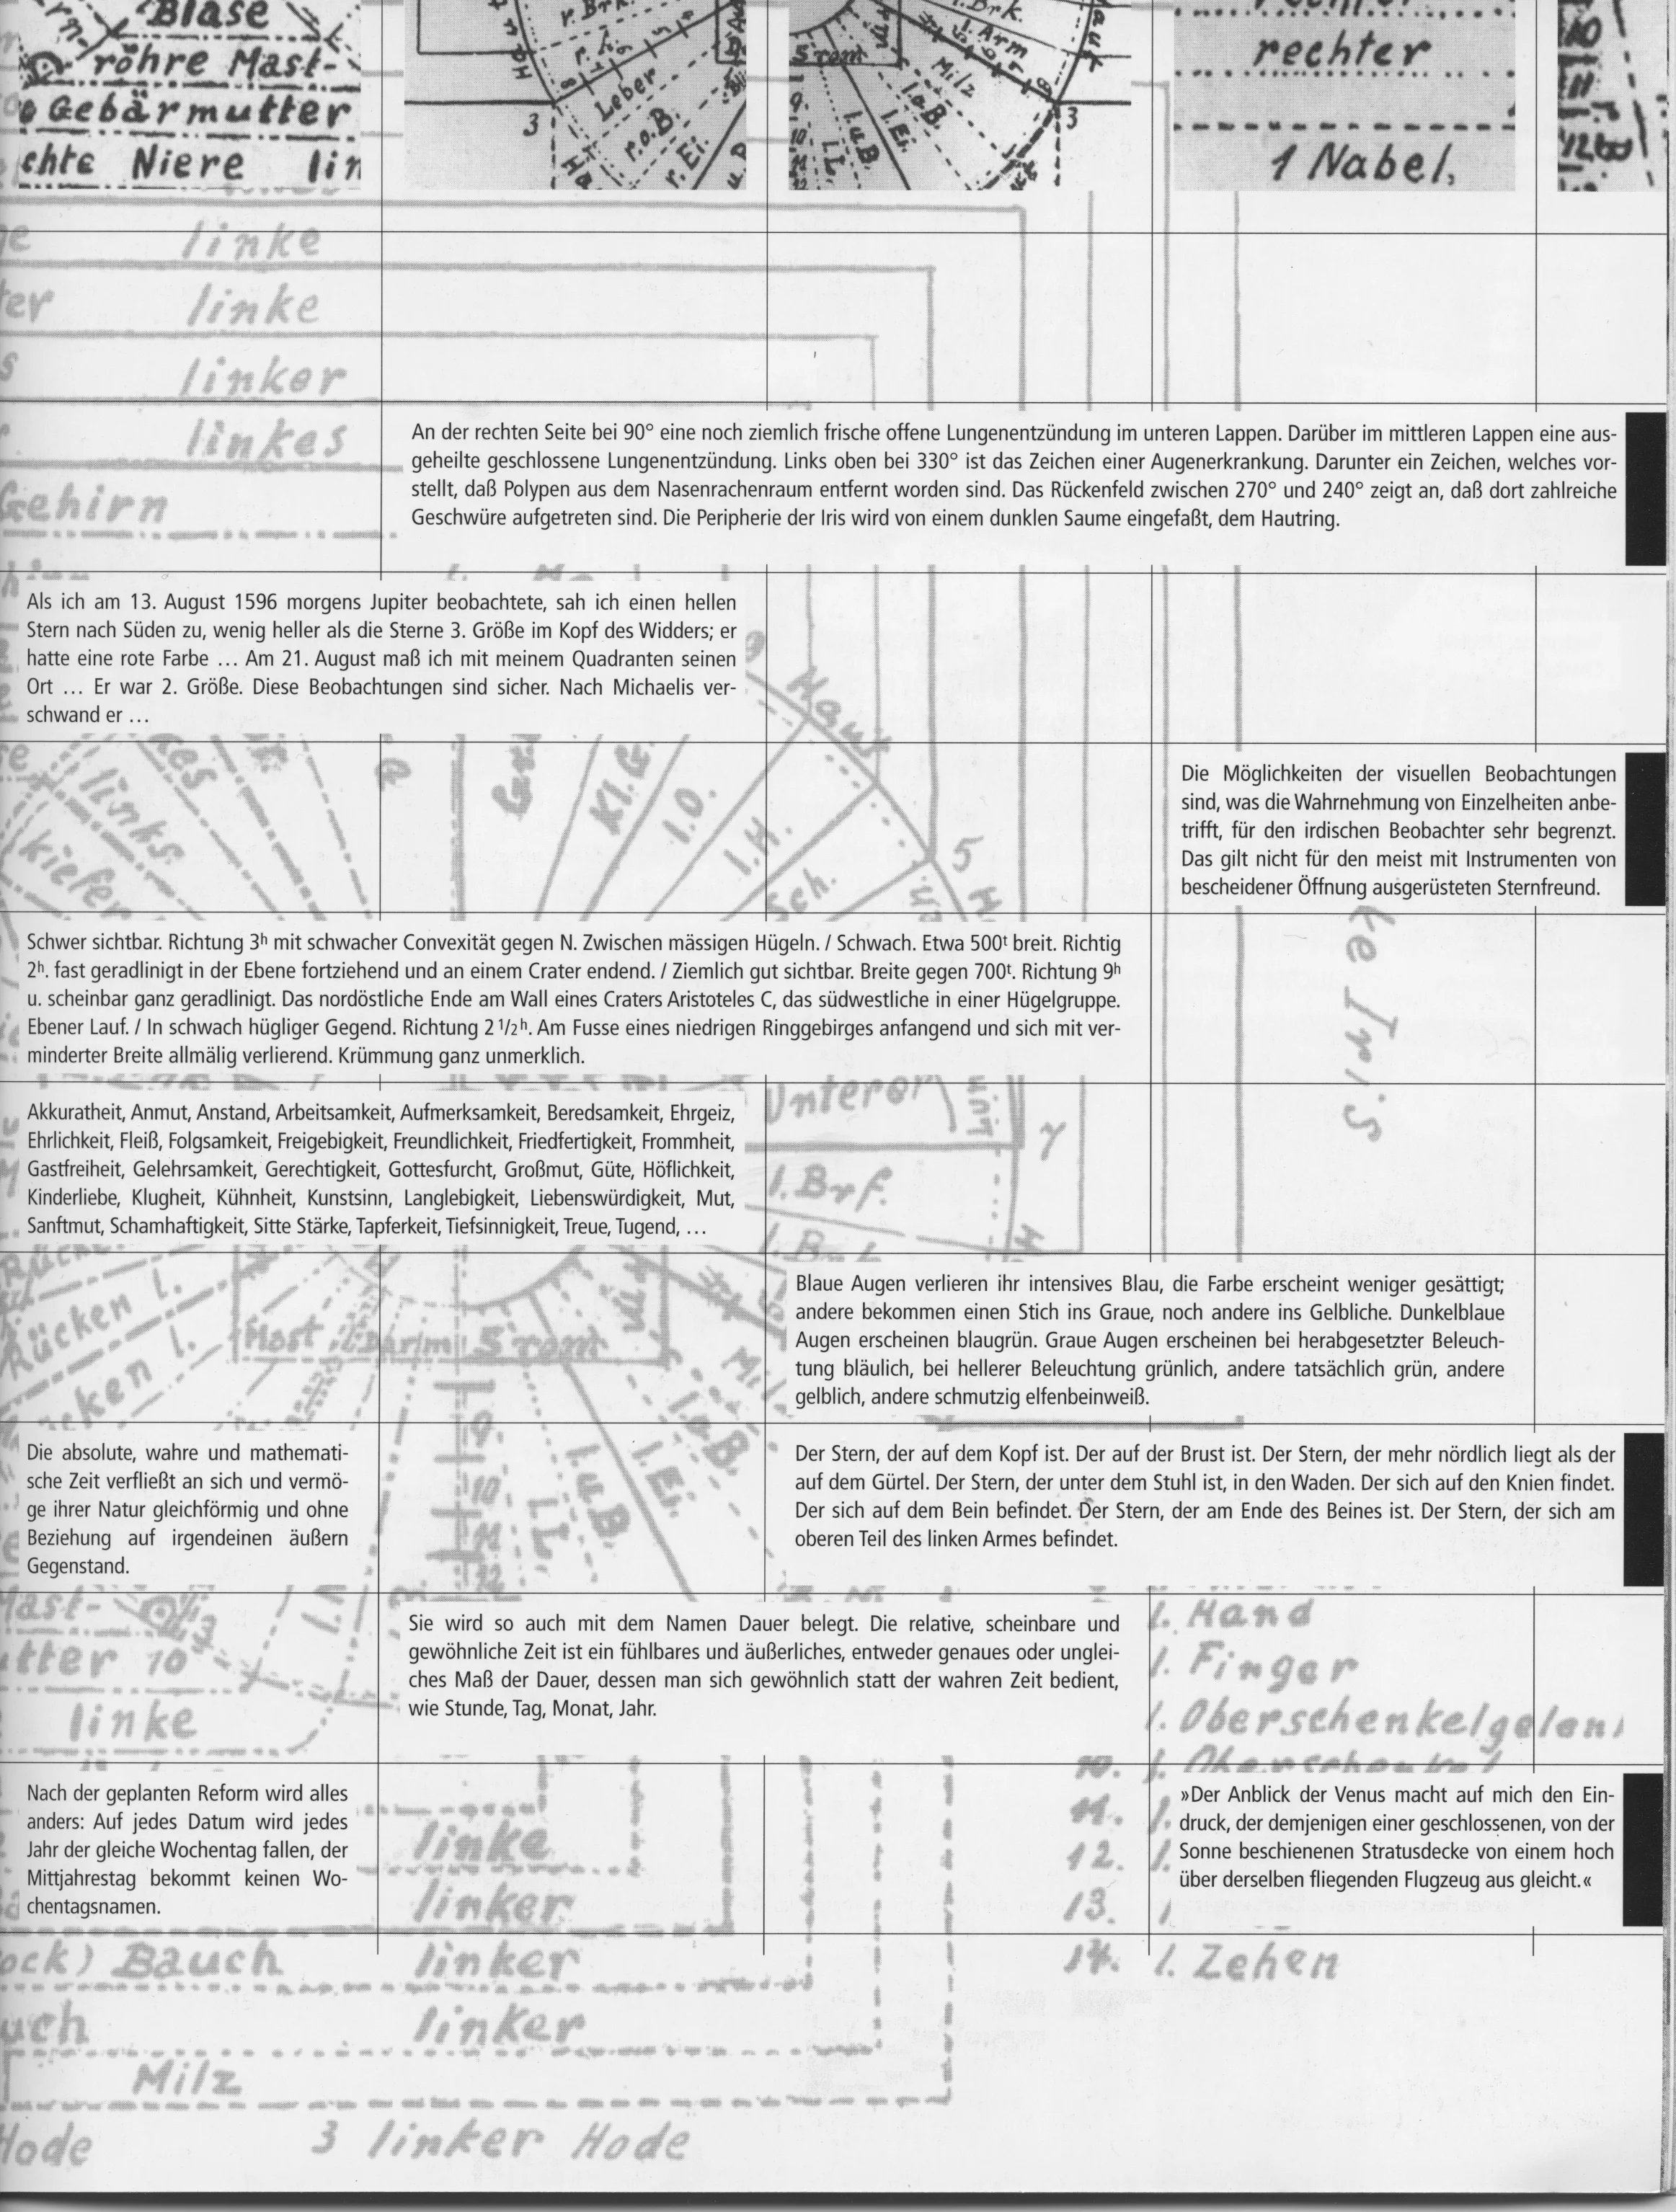 Blase
röhre Mast-
Gebärmutter
chte Niere lin
r. Brk.
Leber
r.o.B.
r. Ei.
3
S rom
l. Arm
Milz
l.o.B.
l. Ei.
l.u.B.
l. L.
9
10
11
12
3
rechter
1 Nabel,
10
11
12
linke
linke
linker
linkes
Gehirn
An der rechten Seite bei 90° eine noch ziemlich frische offene Lungenentzündung im unteren Lappen. Darüber im mittleren Lappen eine aus-
geheilte geschlossene Lungenentzündung. Links oben bei 330° ist das Zeichen einer Augenerkrankung. Darunter ein Zeichen, welches vor-
stellt, daß Polypen aus dem Nasenrachenraum entfernt worden sind. Das Rückenfeld zwischen 270° und 240° zeigt an, daß dort zahlreiche
Geschwüre aufgetreten sind. Die Peripherie der Iris wird von einem dunklen Saume eingefaßt, dem Hautring.
Als ich am 13. August 1596 morgens Jupiter beobachtete, sah ich einen hellen
Stern nach Süden zu, wenig heller als die Sterne 3. Größe im Kopf des Widders; er
hatte eine rote Farbe … Am 21. August maß ich mit meinem Quadranten seinen
Ort … Er war 2. Größe. Diese Beobachtungen sind sicher. Nach Michaelis ver-
schwand er …
Haut
links
kiefer
Kl. G.
l. O.
l. H.
Sch.
5
Die Möglichkeiten der visuellen Beobachtungen
sind, was die Wahrnehmung von Einzelheiten anbe-
trifft, für den irdischen Beobachter sehr begrenzt.
Das gilt nicht für den meist mit Instrumenten von
bescheidener Öffnung ausgerüsteten Sternfreund.
ke Iris
Schwer sichtbar. Richtung 3ʰ mit schwacher Convexität gegen N. Zwischen mässigen Hügeln. / Schwach. Etwa 500ᵗ breit. Richtig
2ʰ. fast geradlinigt in der Ebene fortziehend und an einem Crater endend. / Ziemlich gut sichtbar. Breite gegen 700ᵗ. Richtung 9ʰ
u. scheinbar ganz geradlinigt. Das nordöstliche Ende am Wall eines Craters Aristoteles C, das südwestliche in einer Hügelgruppe.
Ebener Lauf. / In schwach hügliger Gegend. Richtung 2 1/2ʰ. Am Fusse eines niedrigen Ringgebirges anfangend und sich mit ver-
minderter Breite allmälig verlierend. Krümmung ganz unmerklich.
Akkuratheit, Anmut, Anstand, Arbeitsamkeit, Aufmerksamkeit, Beredsamkeit, Ehrgeiz,
Ehrlichkeit, Fleiß, Folgsamkeit, Freigebigkeit, Freundlichkeit, Friedfertigkeit, Frommheit,
Gastfreiheit, Gelehrsamkeit, Gerechtigkeit, Gottesfurcht, Großmut, Güte, Höflichkeit,
Kinderliebe, Klugheit, Kühnheit, Kunstsinn, Langlebigkeit, Liebenswürdigkeit, Mut,
Sanftmut, Schamhaftigkeit, Sitte Stärke, Tapferkeit, Tiefsinnigkeit, Treue, Tugend, …
Unterer
l. Brf.
Rücken l.
cken l.
Mast darm S rom
Blaue Augen verlieren ihr intensives Blau, die Farbe erscheint weniger gesättigt;
andere bekommen einen Stich ins Graue, noch andere ins Gelbliche. Dunkelblaue
Augen erscheinen blaugrün. Graue Augen erscheinen bei herabgesetzter Beleuch-
tung bläulich, bei hellerer Beleuchtung grünlich, andere tatsächlich grün, andere
gelblich, andere schmutzig elfenbeinweiß.
Die absolute, wahre und mathemati-
sche Zeit verfließt an sich und vermö-
ge ihrer Natur gleichförmig und ohne
Beziehung auf irgendeinen äußern
Gegenstand.
9.
10
11
12
l. L.
l.u.B.
l. Ei.
l.o.B.
Der Stern, der auf dem Kopf ist. Der auf der Brust ist. Der Stern, der mehr nördlich liegt als der
auf dem Gürtel. Der Stern, der unter dem Stuhl ist, in den Waden. Der sich auf den Knien findet.
Der sich auf dem Bein befindet. Der Stern, der am Ende des Beines ist. Der Stern, der sich am
oberen Teil des linken Armes befindet.
Mast-
tter 10
linke
Sie wird so auch mit dem Namen Dauer belegt. Die relative, scheinbare und
gewöhnliche Zeit ist ein fühlbares und äußerliches, entweder genaues oder unglei-
ches Maß der Dauer, dessen man sich gewöhnlich statt der wahren Zeit bedient,
wie Stunde, Tag, Monat, Jahr.
l. Hand
l. Finger
l. Oberschenkelgelen
Nach der geplanten Reform wird alles
anders: Auf jedes Datum wird jedes
Jahr der gleiche Wochentag fallen, der
Mittjahrestag bekommt keinen Wo-
chentagsnamen.
linke
linker
10.
11. l.
12. l.
13. l
»Der Anblick der Venus macht auf mich den Ein-
druck, der demjenigen einer geschlossenen, von der
Sonne beschienenen Stratusdecke von einem hoch
über derselben fliegenden Flugzeug aus gleicht.«
ock) Bauch linker
14. l. Zehen
uch linker
Milz
Hode 3 linker Hode